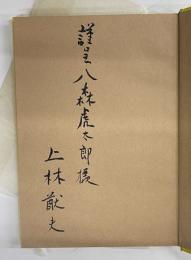 謹呈 八森虎太郎様
上林猷夫